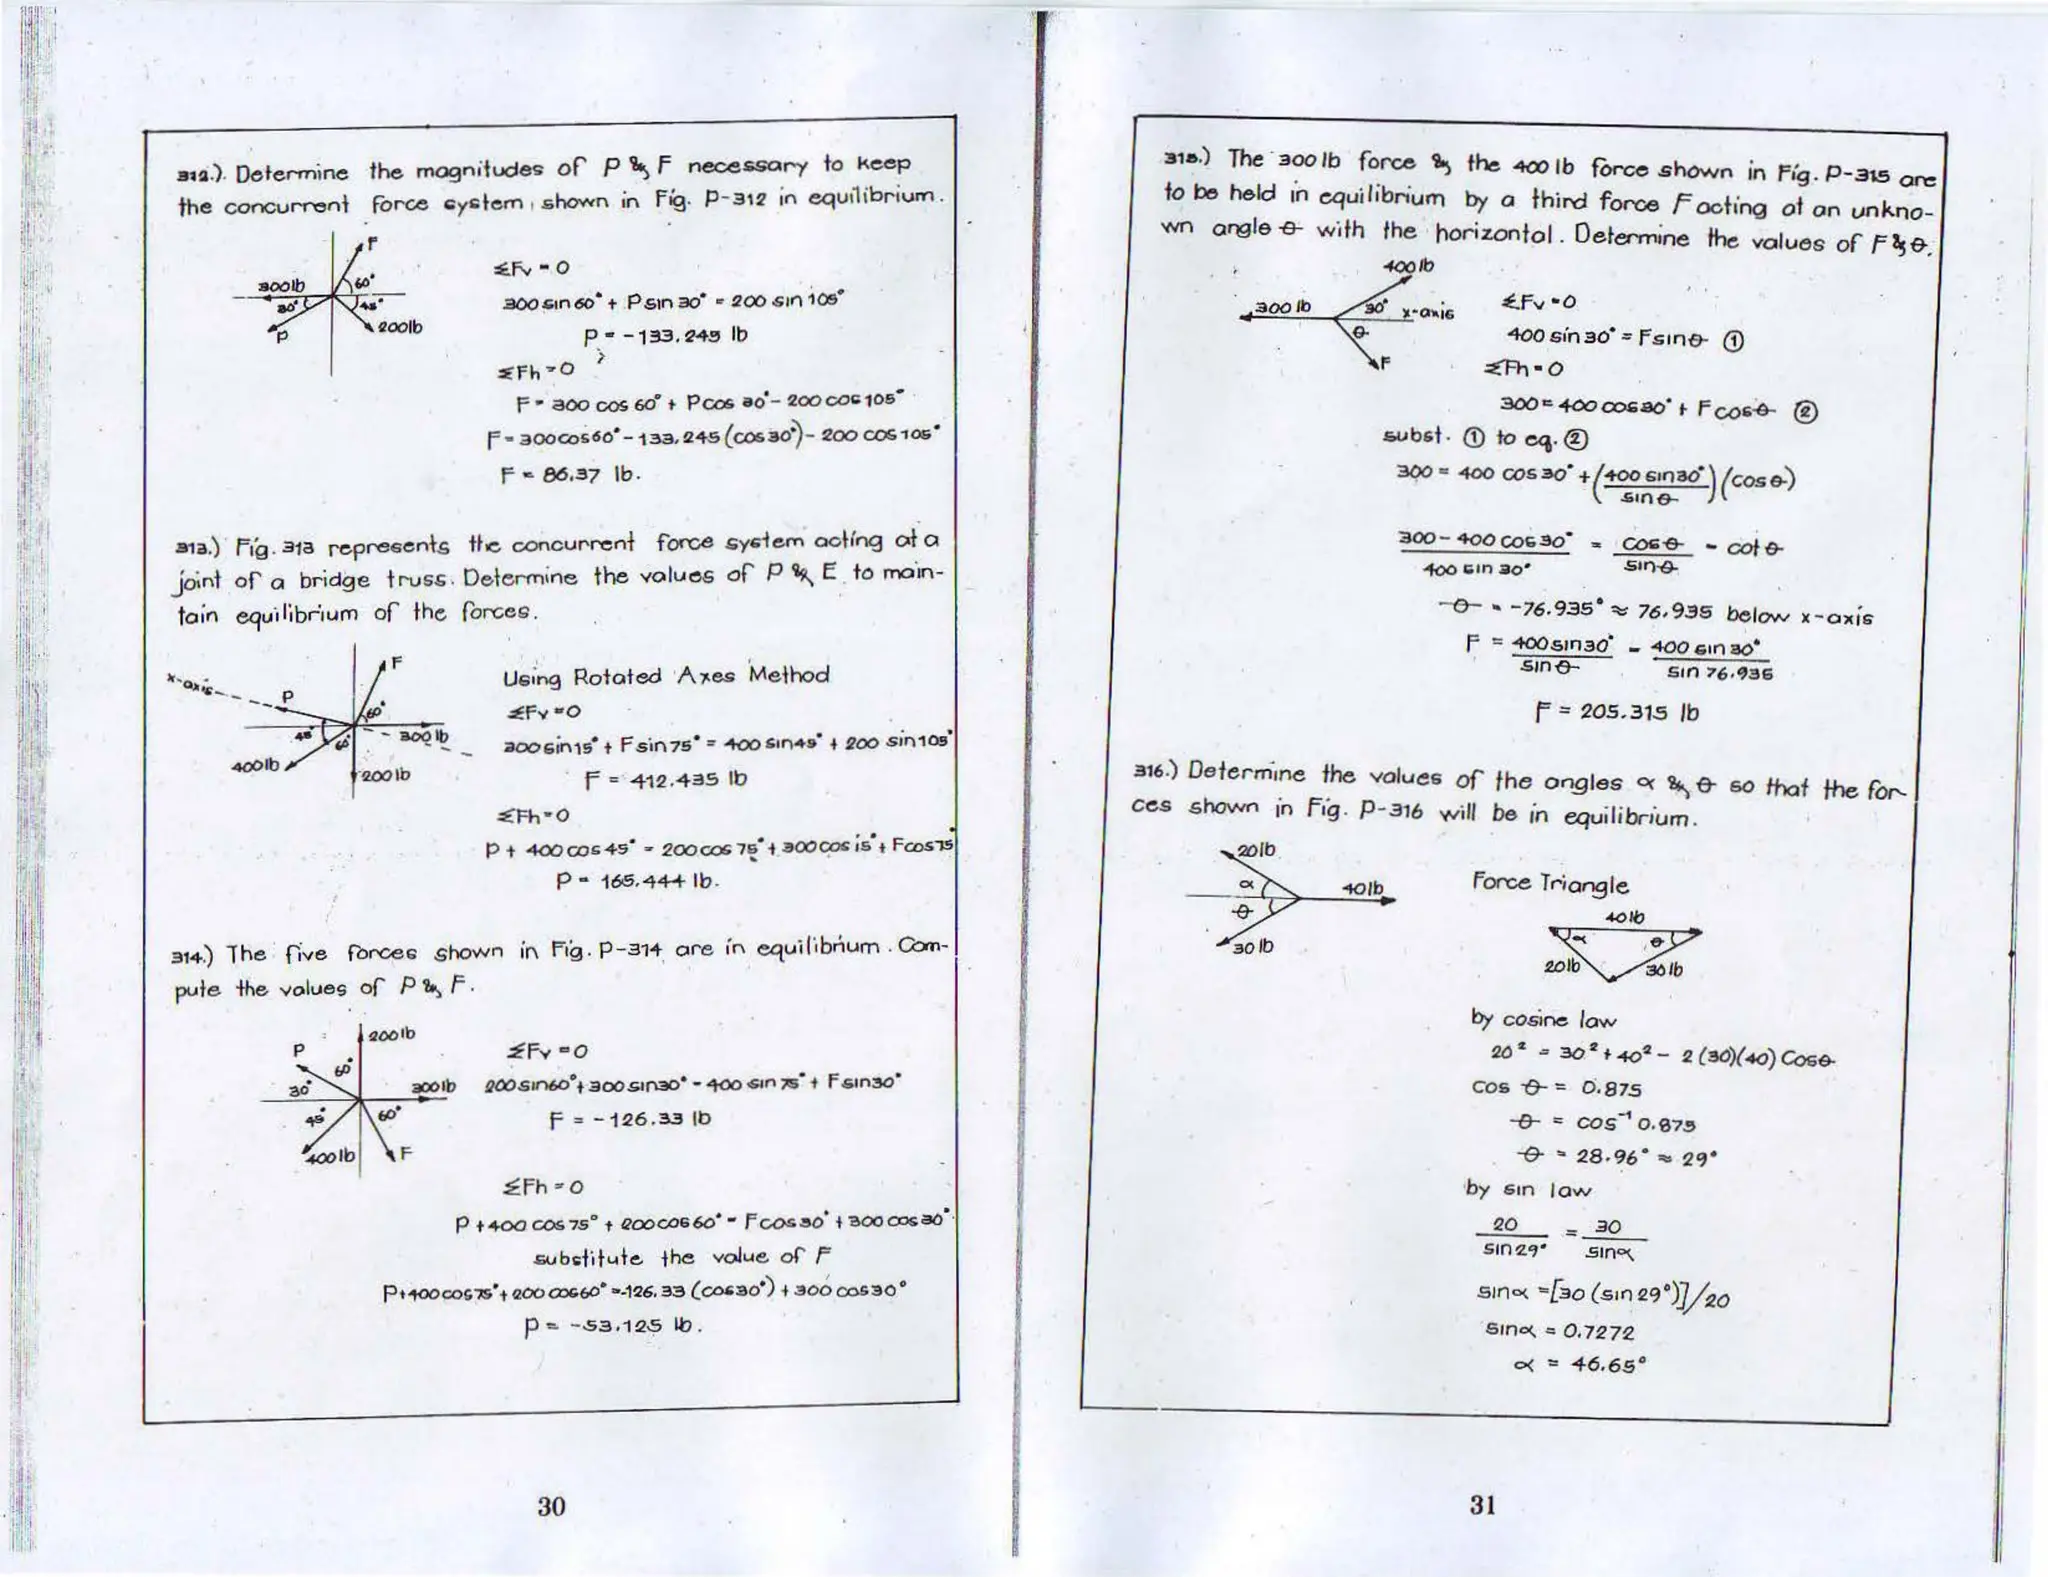 312.). Determine the magnitudes of P & F necessary to keep
the concurrent force system, shown in Fig. P-312 in equilibrium.
F
300lb
60°
30°
45°
200lb
P
ΣFv = 0
300 sin 60° + P sin 30° = 200 sin 105°
P = -133.245 lb
ΣFh = 0
F = 300 cos 60° + P cos 30° - 200 cos 105°
F = 300cos60° - 133.245 (cos30°) - 200 cos 105°
F = 86.37 lb.
313.) Fig. 313 represents the concurrent force system acting at a
joint of a bridge truss. Determine the values of P & E to main-
tain equilibrium of the forces.
x-axis
P
F
60°
45°
60°
300 lb
400lb
200lb
Using Rotated Axes Method
ΣFv = 0
300 sin 15° + F sin 75° = 400 sin 45° + 200 sin 105°
F = 412.435 lb
ΣFh = 0
P + 400 cos 45° = 200 cos 75° + 300 cos 15° + F cos 75
P = 165.444 lb.
314.) The five forces shown in Fig. P-314 are in equilibrium. Com-
pute the values of P & F.
200lb
P
60°
30°
300lb
45°
60°
400lb
F
ΣFv = 0
200 sin60° + 300 sin30° - 400 sin 75° + F sin30°
F = -126.33 lb
ΣFh = 0
P + 400 cos 75° + 200 cos 60° = F cos 30° + 300 cos 30°
substitute the value of F
P + 400 cos 75° + 200 cos60° = -126.33 (cos30°) + 300 cos30°
P = -53.125 lb.
30
315.) The 300 lb force & the 400 lb force shown in Fig. P-315 are
to be held in equilibrium by a third force F acting at an unkno-
wn angle θ with the horizontal. Determine the values of F & θ.
400 lb
300 lb
30°
x-axis
θ
F
ΣFv = 0
400 sin 30° = F sin θ ①
ΣFh = 0
300 = 400 cos 30° + F cos θ ②
subst. ① to eq. ②
300 = 400 cos 30° + (400 sin 30° / sin θ) (cos θ)
300 - 400 cos 30° / 400 sin 30° = cos θ / sin θ = cot θ
θ = -76.935° ≈ 76.935 below x-axis
F = 400 sin 30° / sin θ = 400 sin 30° / sin 76.935
F = 205.315 lb
316.) Determine the values of the angles α & θ so that the for-
ces shown in Fig. P-316 will be in equilibrium.
20lb
α
40lb
θ
30 lb
Force Triangle
40 lb
α
θ
20lb
30 lb
by cosine law
20² = 30² + 40² - 2 (30)(40) Cos θ
cos θ = 0.875
θ = cos⁻¹ 0.875
θ = 28.96° ≈ 29°
by sin law
20 / sin 29° = 30 / sin α
sin α = [30 (sin 29°)]/20
sin α = 0.7272
α = 46.65°
31